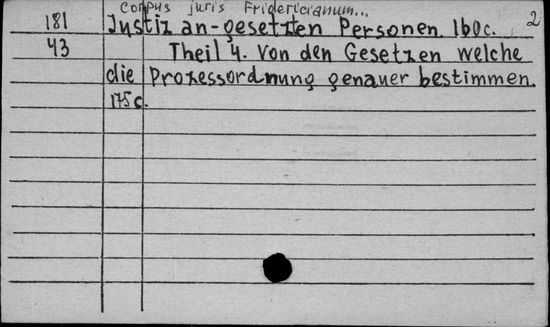 Corpus juris Fridericianum... 2
181 Justiz an-gesetzten Personen. 160c.
43 Theil 4. Von den Gesetzen welche
die Prozessordnung genauer bestimmen.
175c.